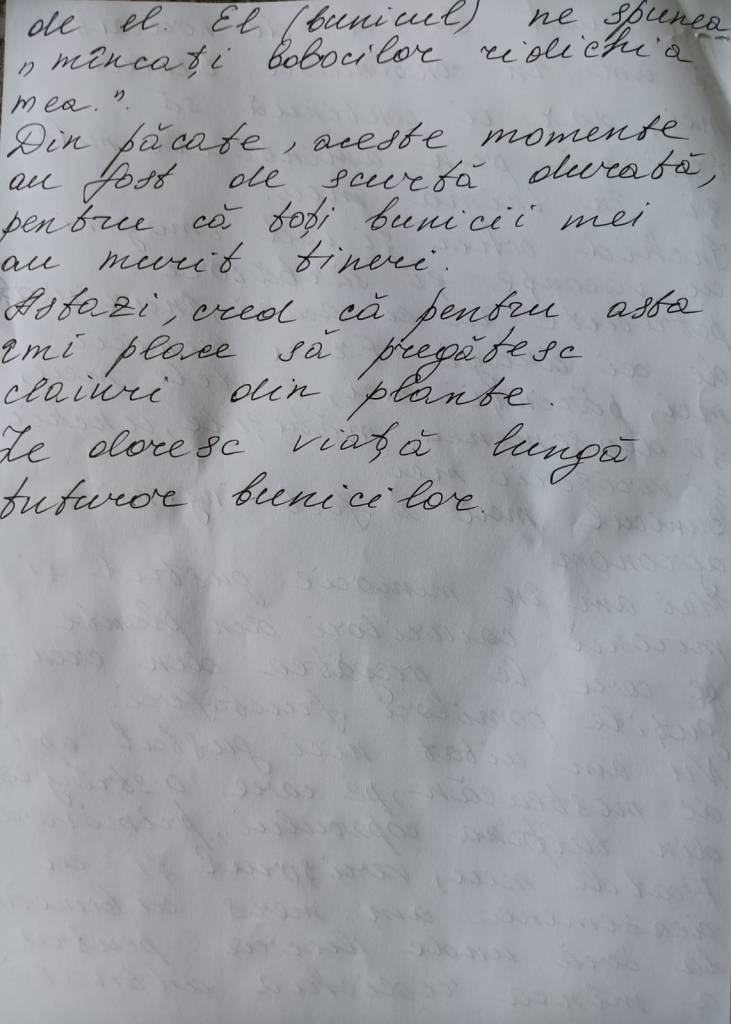 de el. El (bunicul) ne spunea
„mîncați bobocilor ridichia
mea.".
Din păcate, aceste momente
au fost de scurtă durată,
pentru că toți bunicii mei
au murit tineri.
Astazi, cred că pentru asta
îmi place să pregătesc
claiuri din plante.
Le doresc viață lungă
tuturor bunicilor.